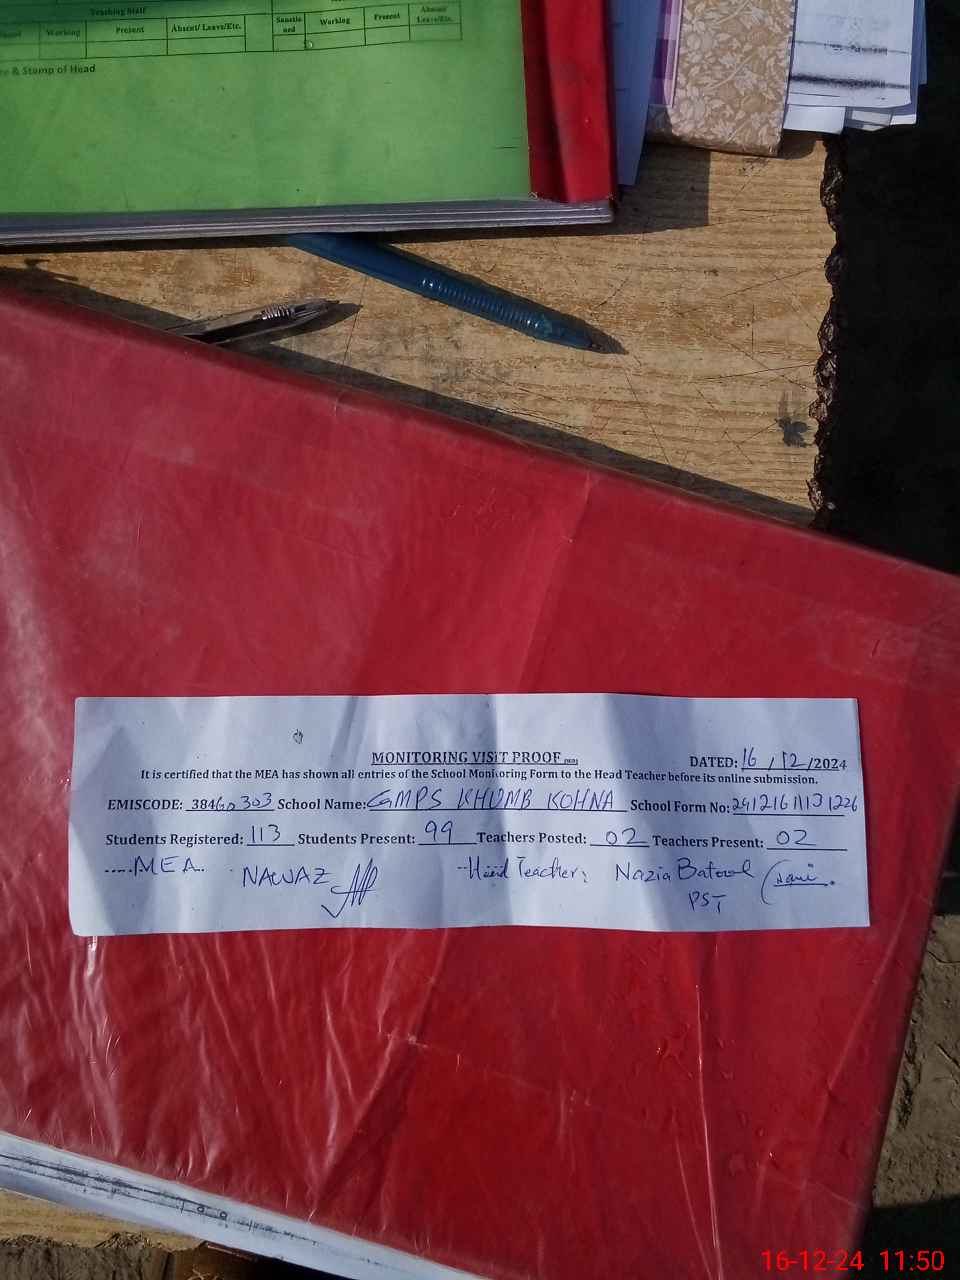 Teaching Staff
Working Present Absent/ Leave/Etc. Sanctioned Working Present Absent/ Leave/Etc.
& Stamp of Head
MONITORING VISIT PROOF
DATED: 16/12/2024
It is certified that the MEA has shown all entries of the School Monitoring Form to the Head Teacher before its online submission.
EMISCODE: 38460303 School Name: GMPS KHUMB KOHNA School Form No:
Students Registered: 113 Students Present: 99 Teachers Posted: 02 Teachers Present: 02
....MEA. NAWAZ Head Teacher: Nazia Batool
PST
16-12-24 11:50